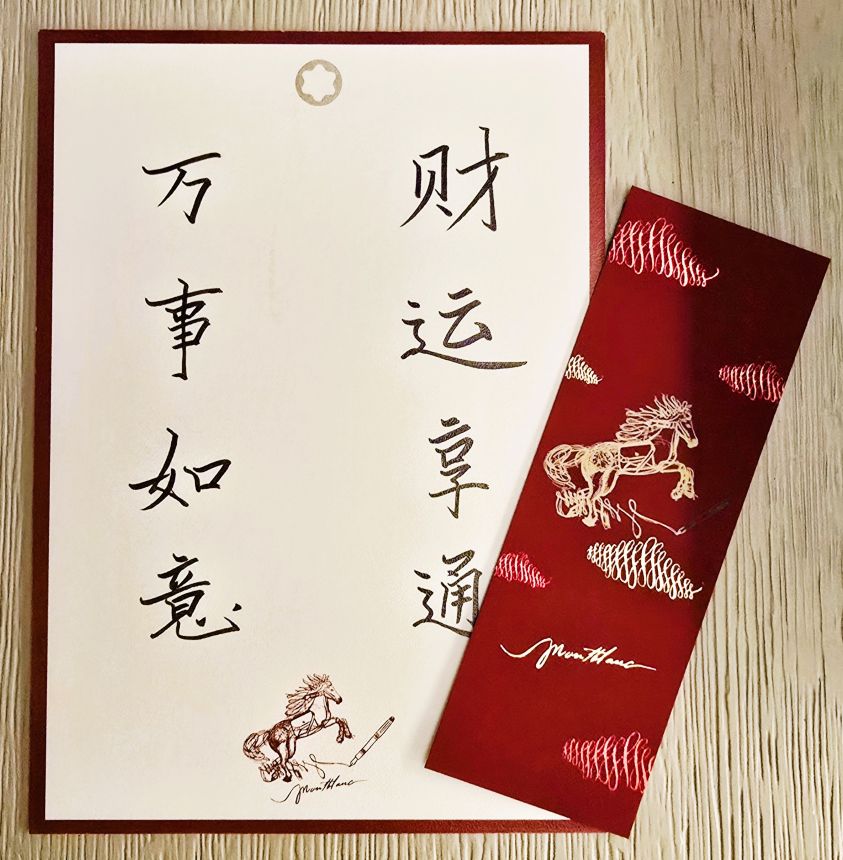 财运享通
万事如意
Montblanc
Montblanc